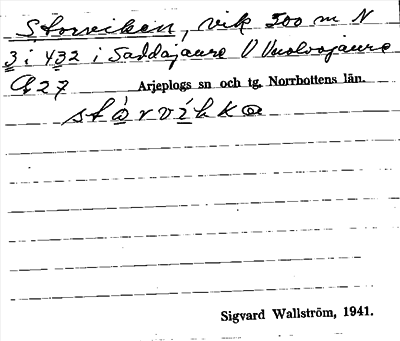 Storviken, vik 500 m N
3 i 432 i Saddajaure V Vuolvojaure
C 27 Arjeplogs sn och tg. Norrbottens län.
stòrvíkka
Sigvard Wallström, 1941.